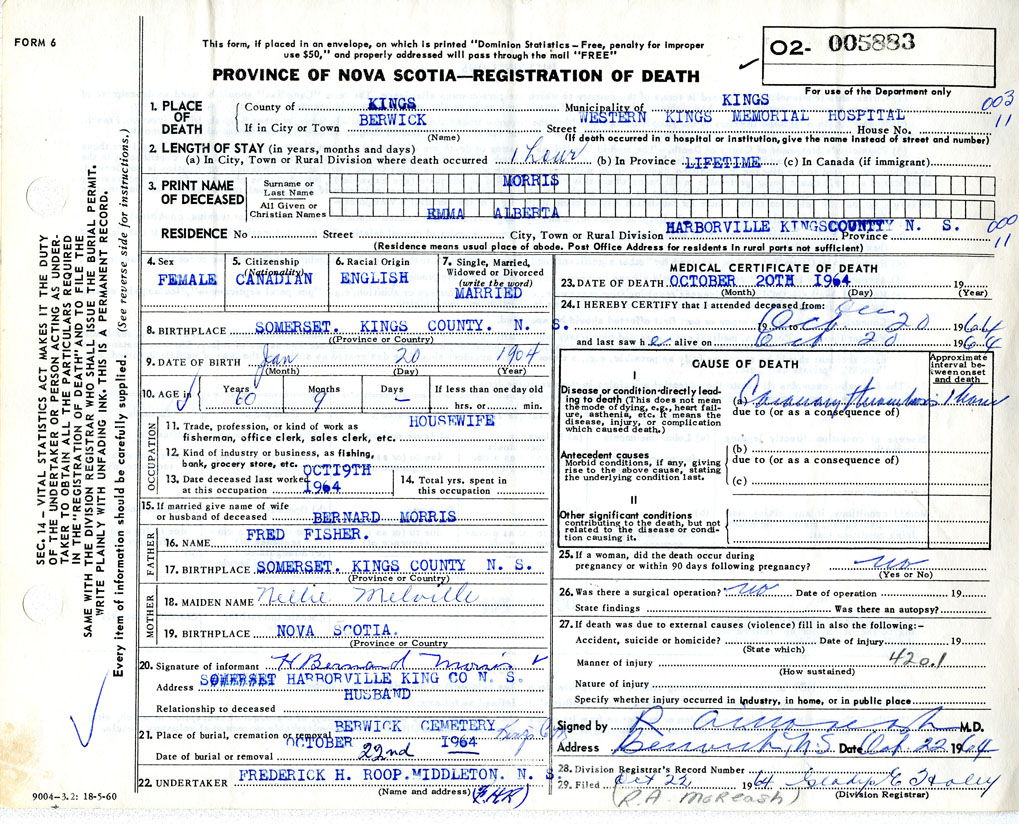 FORM 6
This form, if placed in an envelope, on which is printed "Dominion Statistics – Free, penalty for improper
use $50," and properly addressed will pass through the mail "FREE"
PROVINCE OF NOVA SCOTIA—REGISTRATION OF DEATH
O2- 005883
For use of the Department only
SEC. 14 – VITAL STATISTICS ACT MAKES IT THE DUTY
OF THE UNDERTAKER OR PERSON ACTING AS UNDER-
TAKER TO OBTAIN ALL THE PARTICULARS REQUIRED
IN THE "REGISTRATION OF DEATH" AND TO FILE THE
SAME WITH THE DIVISION REGISTRAR WHO SHALL ISSUE THE BURIAL PERMIT.
WRITE PLAINLY WITH UNFADING INK. THIS IS A PERMANENT RECORD.
Every item of information should be carefully supplied. (See reverse side for instructions.)
1. PLACE OF DEATH
County of KINGS Municipality of KINGS 003
If in City or Town BERWICK Street WESTERN KINGS MEMORIAL HOSPITAL House No. 11
(Name) (If death occurred in a hospital or institution, give the name instead of street and number)
2. LENGTH OF STAY (in years, months and days)
(a) In City, Town or Rural Division where death occurred 1 hour (b) In Province LIFETIME (c) In Canada (if immigrant)
3. PRINT NAME OF DECEASED
Surname or Last Name MORRIS
All Given or Christian Names EMMA ALBERTA
RESIDENCE No Street City, Town or Rural Division HARBORVILLE KINGSCOUNTY N. S. Province 000 11
(Residence means usual place of abode. Post Office Address for residents in rural parts not sufficient)
4. Sex FEMALE
5. Citizenship (Nationality) CANADIAN
6. Racial Origin ENGLISH
7. Single, Married, Widowed or Divorced (write the word) MARRIED
8. BIRTHPLACE SOMERSET. KINGS COUNTY. N. S.
(Province or Country)
9. DATE OF BIRTH Jan 20 1904
(Month) (Day) (Year)
10. AGE in Years 60 Months 9 Days – If less than one day old hrs. or min.
OCCUPATION
11. Trade, profession or kind of work as
fisherman, office clerk, sales clerk, etc. HOUSEWIFE
12. Kind of industry or business, as fishing,
bank, grocery store, etc.
13. Date deceased last worked
at this occupation OCT19TH 1964
14. Total yrs. spent in
this occupation
15. If married give name of wife
or husband of deceased BERNARD MORRIS
FATHER
16. NAME FRED FISHER.
17. BIRTHPLACE SOMERSET. KINGS COUNTY N. S.
(Province or Country)
MOTHER
18. MAIDEN NAME Nellie Melville
19. BIRTHPLACE NOVA SCOTIA.
(Province or Country
20. Signature of informant H Bernard Morris
Address SOMERSET HARBORVILLE KING CO N. S.
Relationship to deceased HUSBAND
21. Place of burial, cremation or removal BERWICK CEMETERY
Date of burial or removal OCTOBER 22nd 1964
22. UNDERTAKER FREDERICK H. ROOP.MIDDLETON. N. S.
(Name and address) (F.H.R)
9004–3.2: 18-5-60
MEDICAL CERTIFICATE OF DEATH
23. DATE OF DEATH OCTOBER 20TH 1964 19
(Month) (Day) (Year)
24. I HEREBY CERTIFY that I attended deceased from:
19 to Oct 20 1964
and last saw h e alive on Oct 20 1964
CAUSE OF DEATH
Approximate interval between onset and death
I
Disease or condition directly lead-
ing to death (This does not mean
the mode of dying, e.g., heart fail-
ure, asthenia, etc. It means the
disease, injury, or complication
which caused death.)
(a) Coronary thrombosis 1 hour
due to (or as a consequence of)
Antecedent causes
Morbid conditions, if any, giving
rise to the above cause, stating
the underlying condition last.
(b)
due to (or as a consequence of)
(c)
II
Other significant conditions
contributing to the death, but not
related to the disease or condi-
tion causing it.
25. If a woman, did the death occur during
pregnancy or within 90 days following pregnancy? no
(Yes or No)
26. Was there a surgical operation? no Date of operation 19
State findings Was there an autopsy?
27. If death was due to external causes (violence) fill in also the following:-
Accident, suicide or homicide? Date of injury 19
(State which)
Manner of injury 420.1
(How sustained)
Nature of injury
Specify whether injury occurred in industry, in home, or in public place
Signed by M.D.
Address Berwick, N.S. Date Oct. 22 1964
28. Division Registrar's Record Number
29. Filed Oct 22 1964 Gladys E
(Division Registrar)